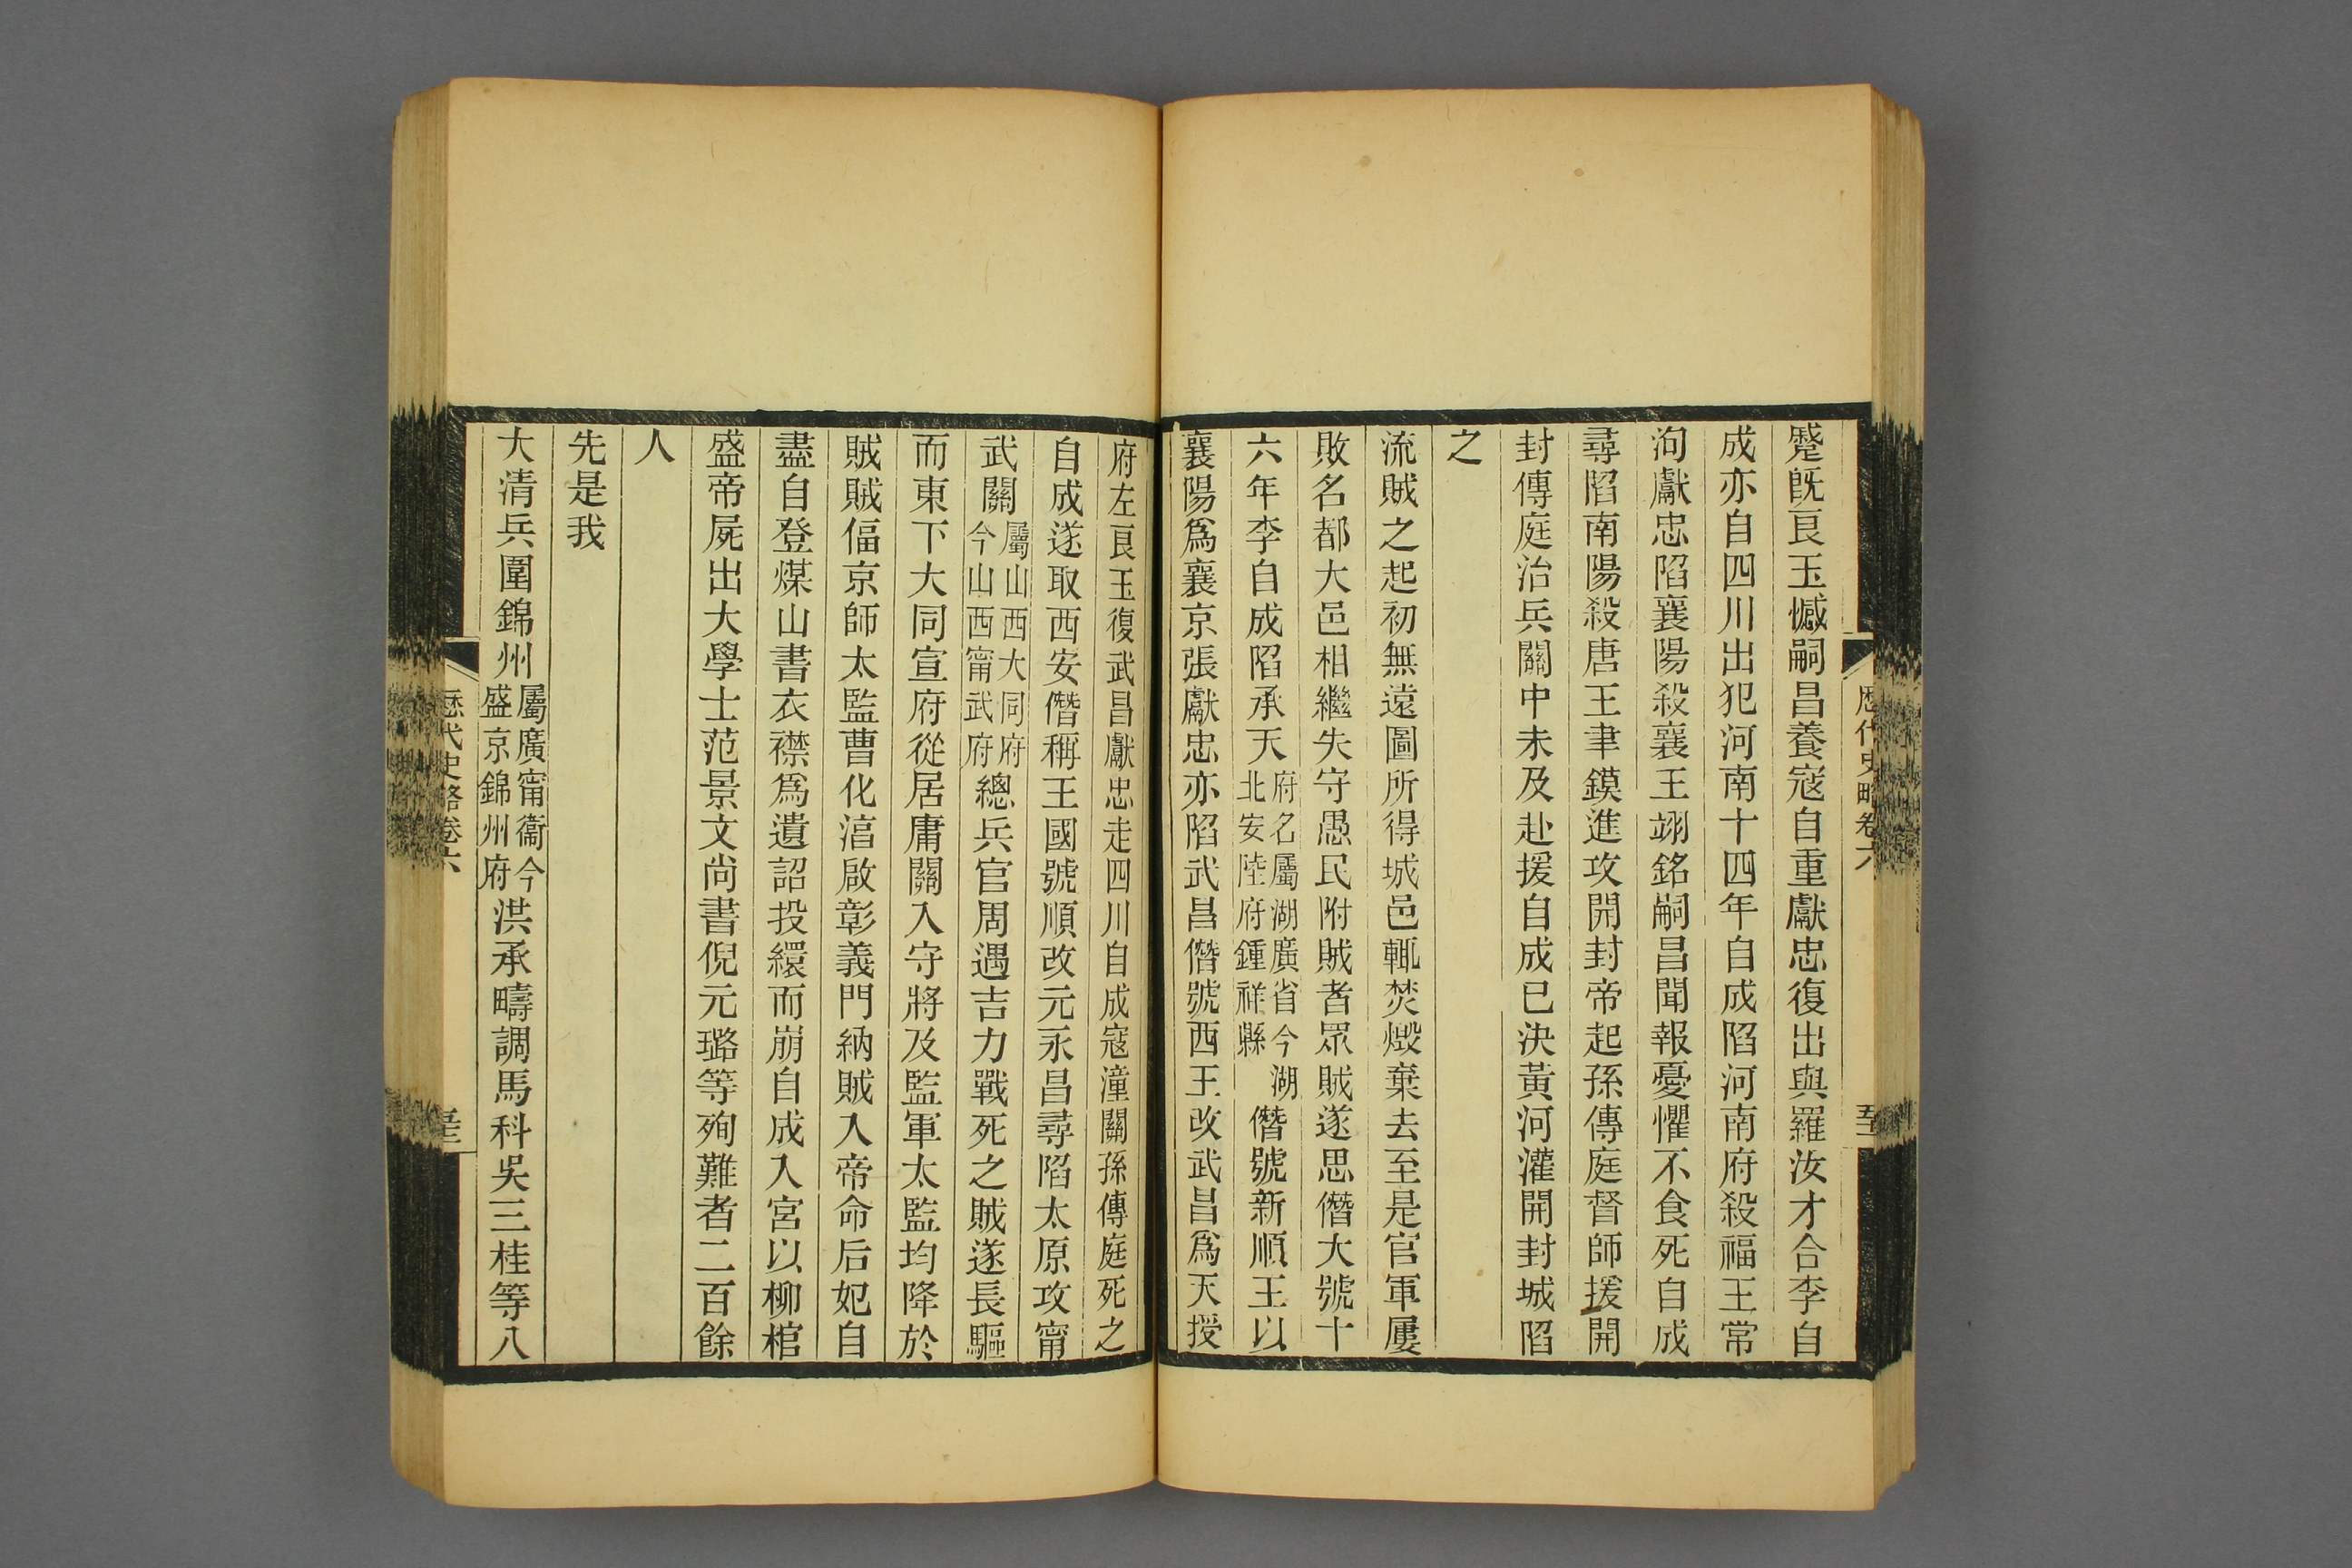 蹙旣良玉憾嗣昌養寇自重獻忠復出與羅汝才合李自
成亦自四川出犯河南十四年自成陷河南府殺福王常
洵獻忠陷襄陽殺襄王翊銘嗣昌聞報憂懼不食死自成
尋陷南陽殺唐王聿鏌進攻開封帝起孫傳庭督師援開
封傳庭治兵關中未及赴援自成已決黃河灌開封城陷
之
流賊之起初無遠圖所得城邑輒焚燬棄去至是官軍屢
敗名都大邑相繼失守愚民附賊者眾賊遂思僭大號十
六年李自成陷承天府名屬湖廣省今湖北安陸府鍾祥縣僭號新順王以
襄陽爲襄京張獻忠亦陷武昌僭號西王改武昌爲天授
府左良玉復武昌獻忠走四川自成寇潼關孫傳庭死之
自成遂取西安僭稱王國號順改元永昌尋陷太原攻甯
武關屬山西大同府今山西甯武府總兵官周遇吉力戰死之賊遂長驅
而東下大同宣府從居庸關入守將及監軍太監均降於
賊賊偪京師太監曹化淳啟彰義門納賊入帝命后妃自
盡自登煤山書衣襟爲遺詔投繯而崩自成入宮以柳棺
盛帝屍出大學士范景文尚書倪元璐等殉難者二百餘
人
先是我
大清兵圍錦州屬廣甯衞今盛京錦州府洪承疇調馬科吳三桂等八
歷代史略卷六
歷代史略卷六